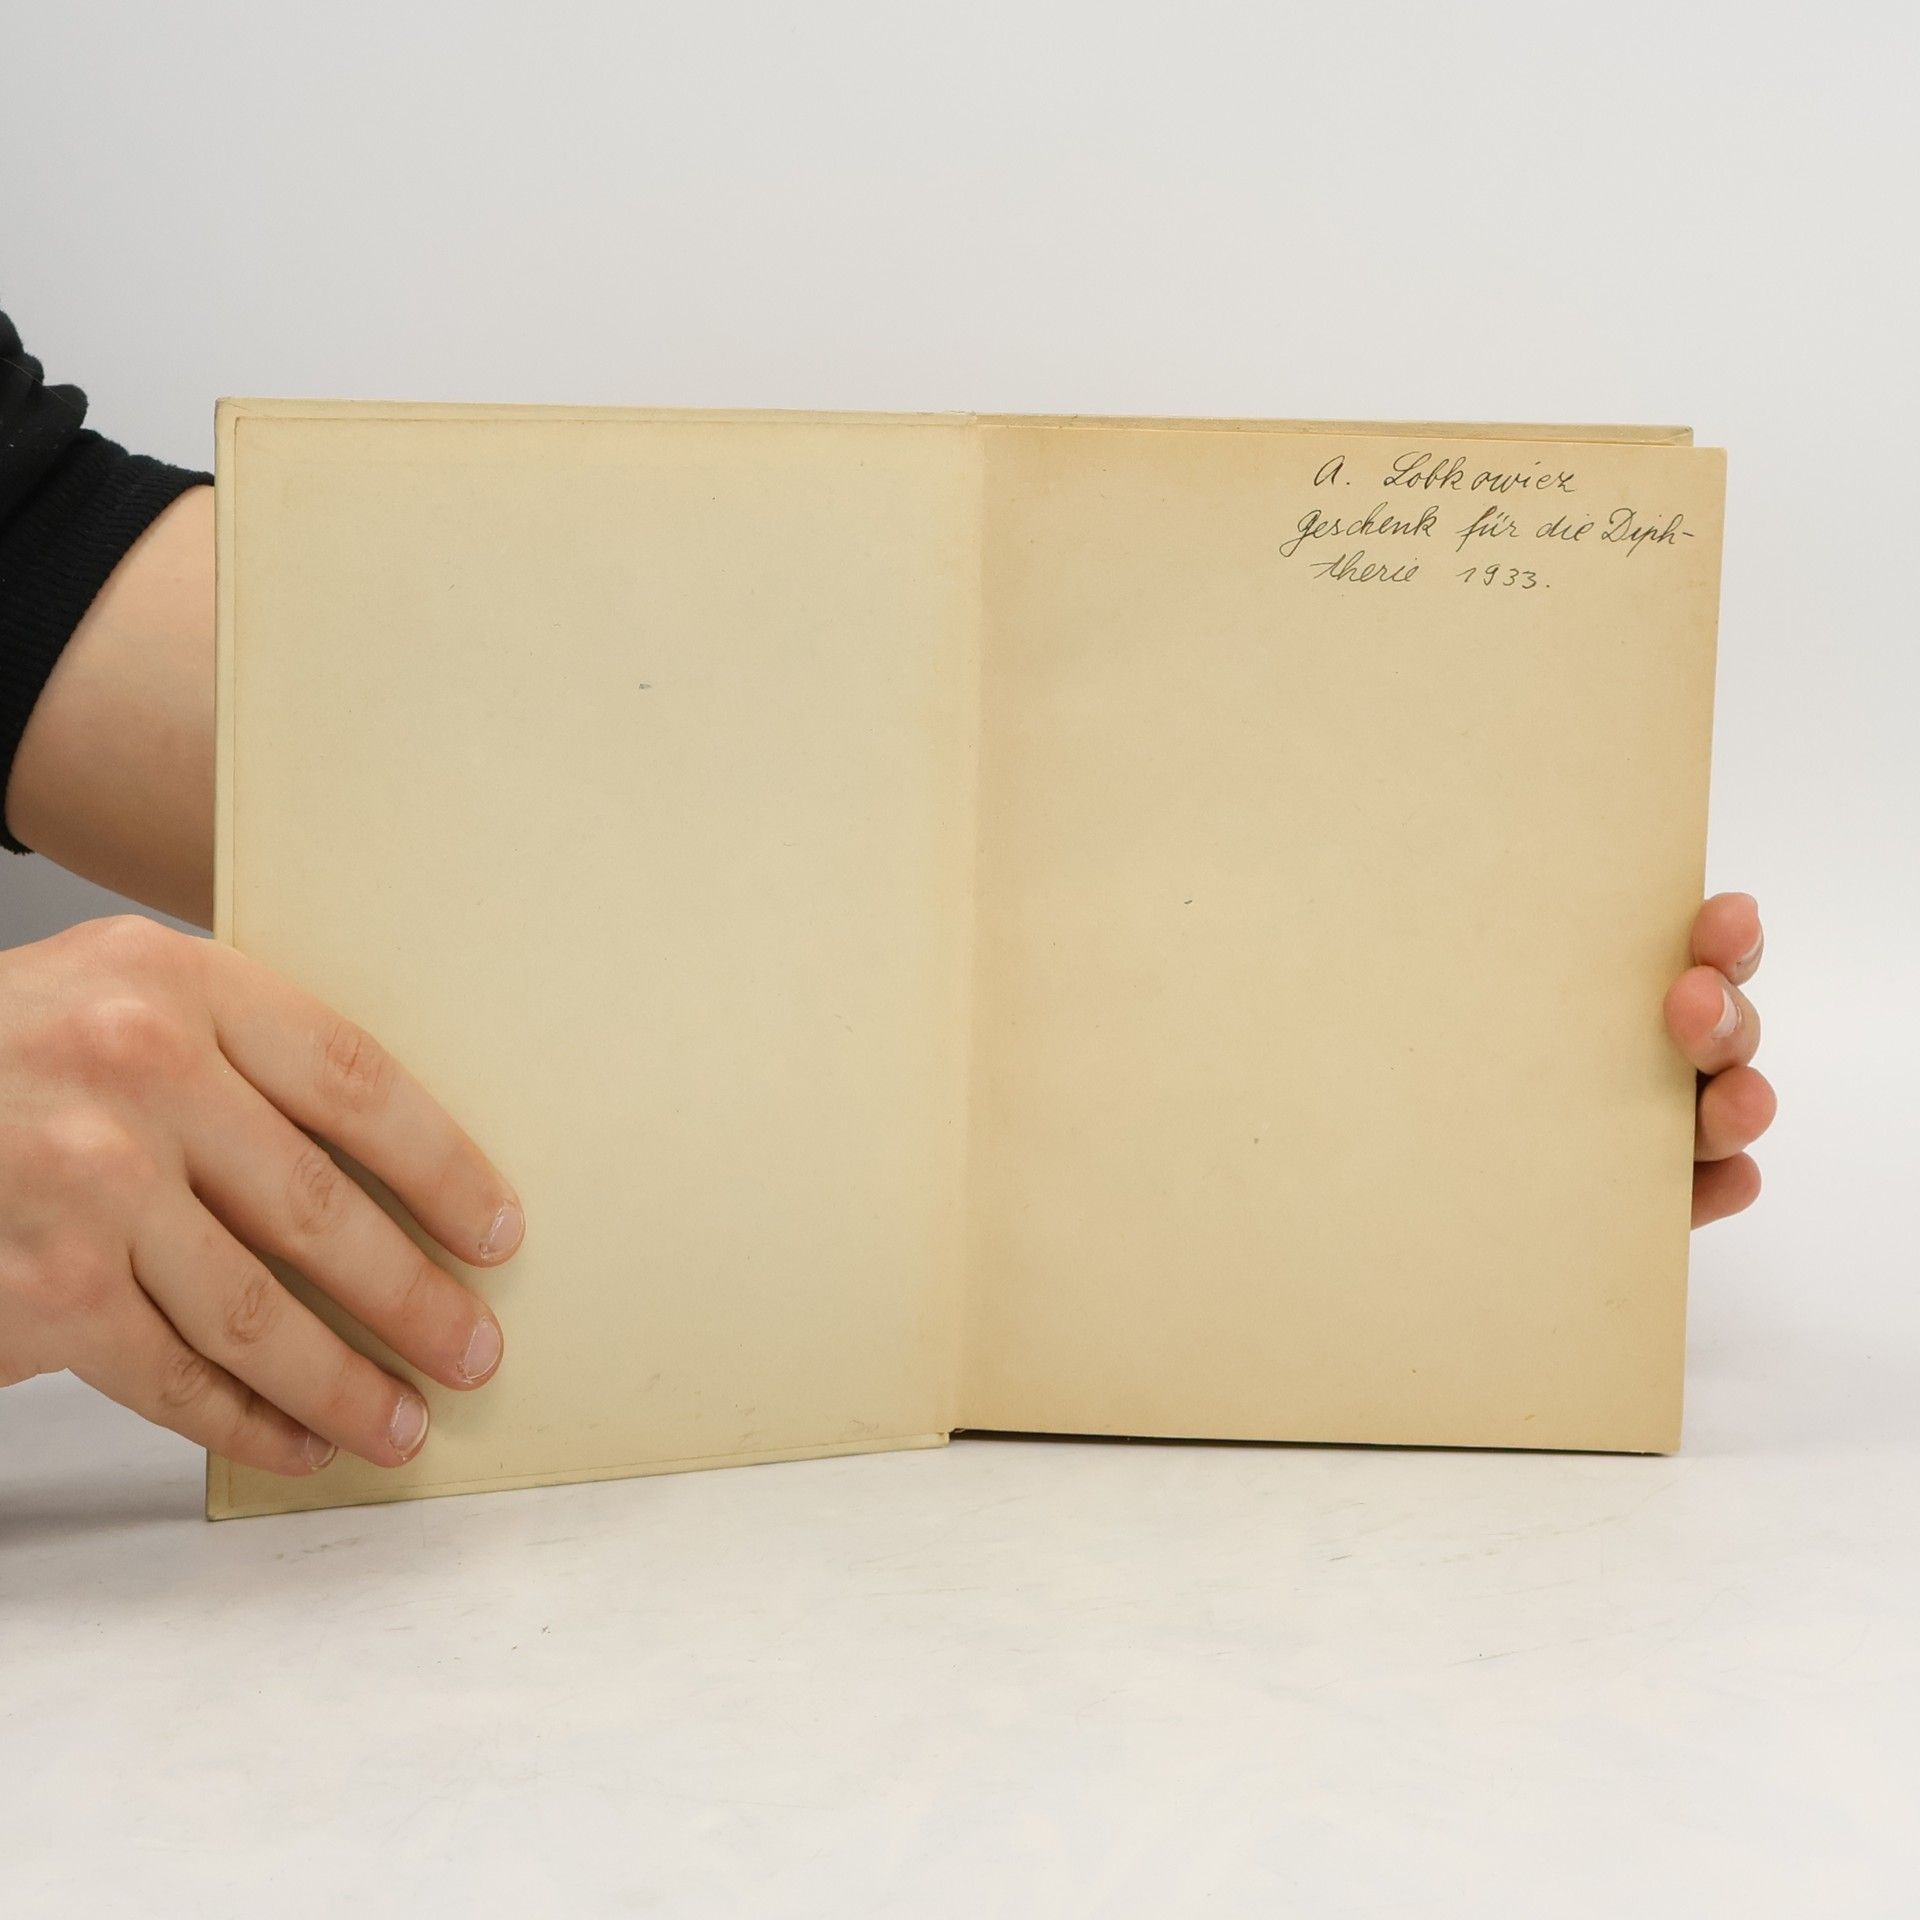 A. Lobkowicz
Geschenk für die Diph-
therie 1933.